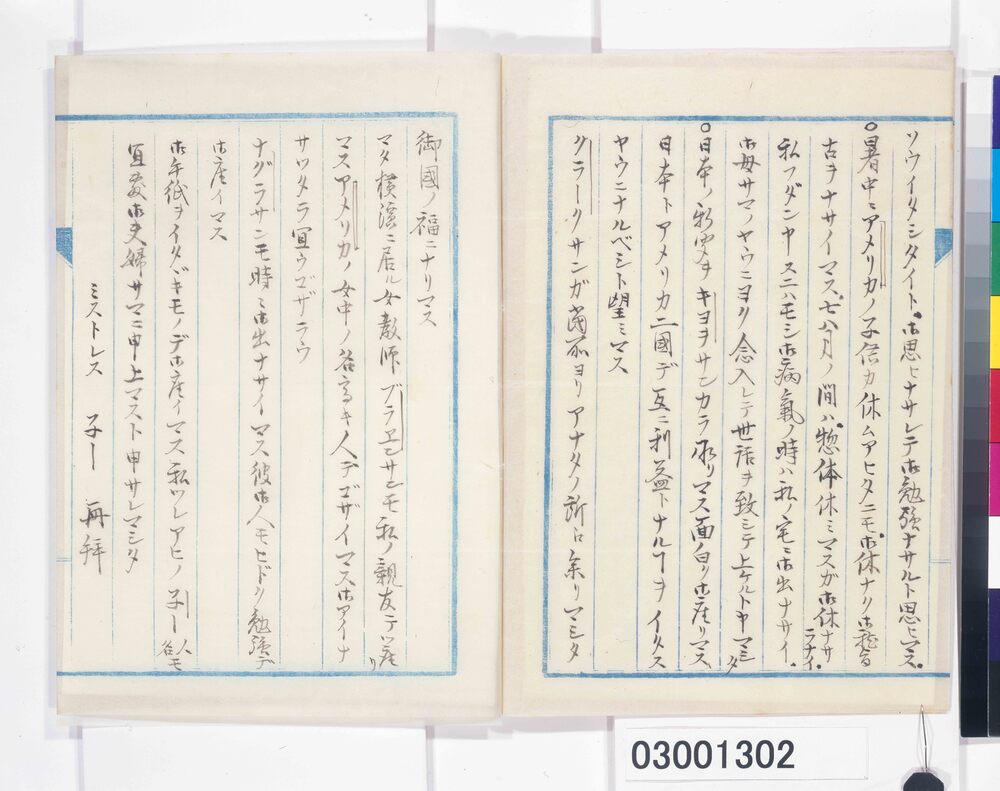 ソウイタシタイト、ホ思ヒナサレテホ勉強ナサルト思ヒマス、
○暑中ニアメリカノ子供カ休ムアヒタニモホ休ナクホ稽
古ヲナサイマス、七八月ノ間ハ、惣体休ミマスガホ休ナサラナイ、
私フダンヤスニハモシホ病氣ノ時ハ私ノ宅ミホ出ナサイ、
ホ母サマノヤウニヨク念入レテ世話ヲ致シテ上ケルトヤマシタ
○日本ノ新聞ヲキヨヲサンカラ承リマス面白クホ座リマス
日本トアメリカ二國デ互ニ利益トナルヿヲイタス
ヤウニナルベシト望ミマス
クラークサンガ当所ヨリアナタノ所ロ余リマシタ
御國ノ福ニナリマス
マタ横濱ニ居ル女教師ブラヱンサンモ私ノ親友テ座リ
マスアメリカノ女中ノ名高キ人デゴザイマスホアイナ
サツタラ宜ウゴザラウ
ナグラサンモ時ミホ出ナサイマス彼ホ人モヒドク勉強デ
ホ座イマス
ホ手紙ヲイタヾキモノデホ座イマス私ツレアヒノ子ー人名モ
宜敷ホ夫婦サマニ申上マスト申サレマシタ
ミストレス 子ー 再拜
03001302